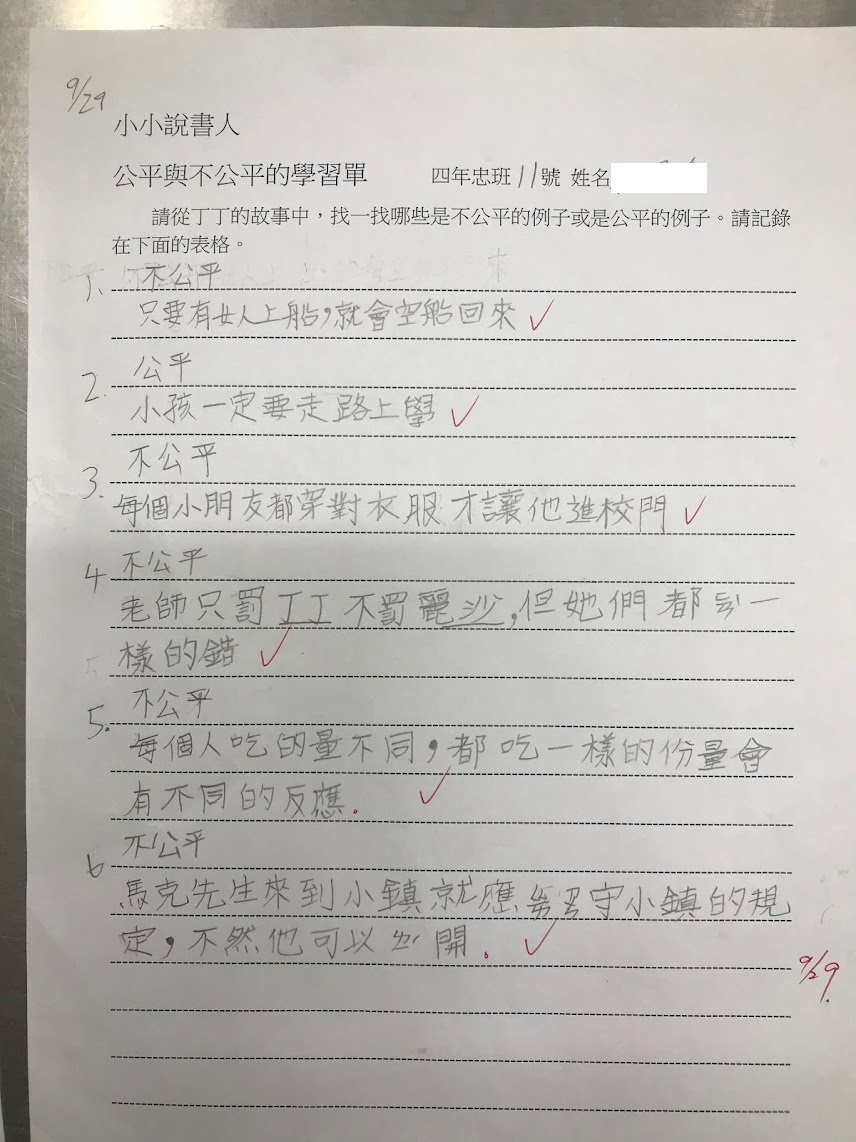 9/29
小小說書人
公平與不公平的學習單 四年忠班 11 號 姓名
請從丁丁的故事中,找一找哪些是不公平的例子或是公平的例子。請記錄
在下面的表格。
1. 不公平
只要有女人上船,就會空船回來 ✓
2. 公平
小孩一定要走路上學 ✓
3. 不公平
每個小朋友都穿對衣服才讓他進校門 ✓
4 不公平
老師只罰丁丁不罰麗沙,但她們都ㄉㄠˋ一
樣的錯 ✓
5. 不公平
每個人吃的量不同,都吃一樣的份量會
有不同的反應. ✓
6 不公平
馬克先生來到小鎮就應守小鎮的規
定,不然他可以ㄌㄧˊ開. ✓
9/29